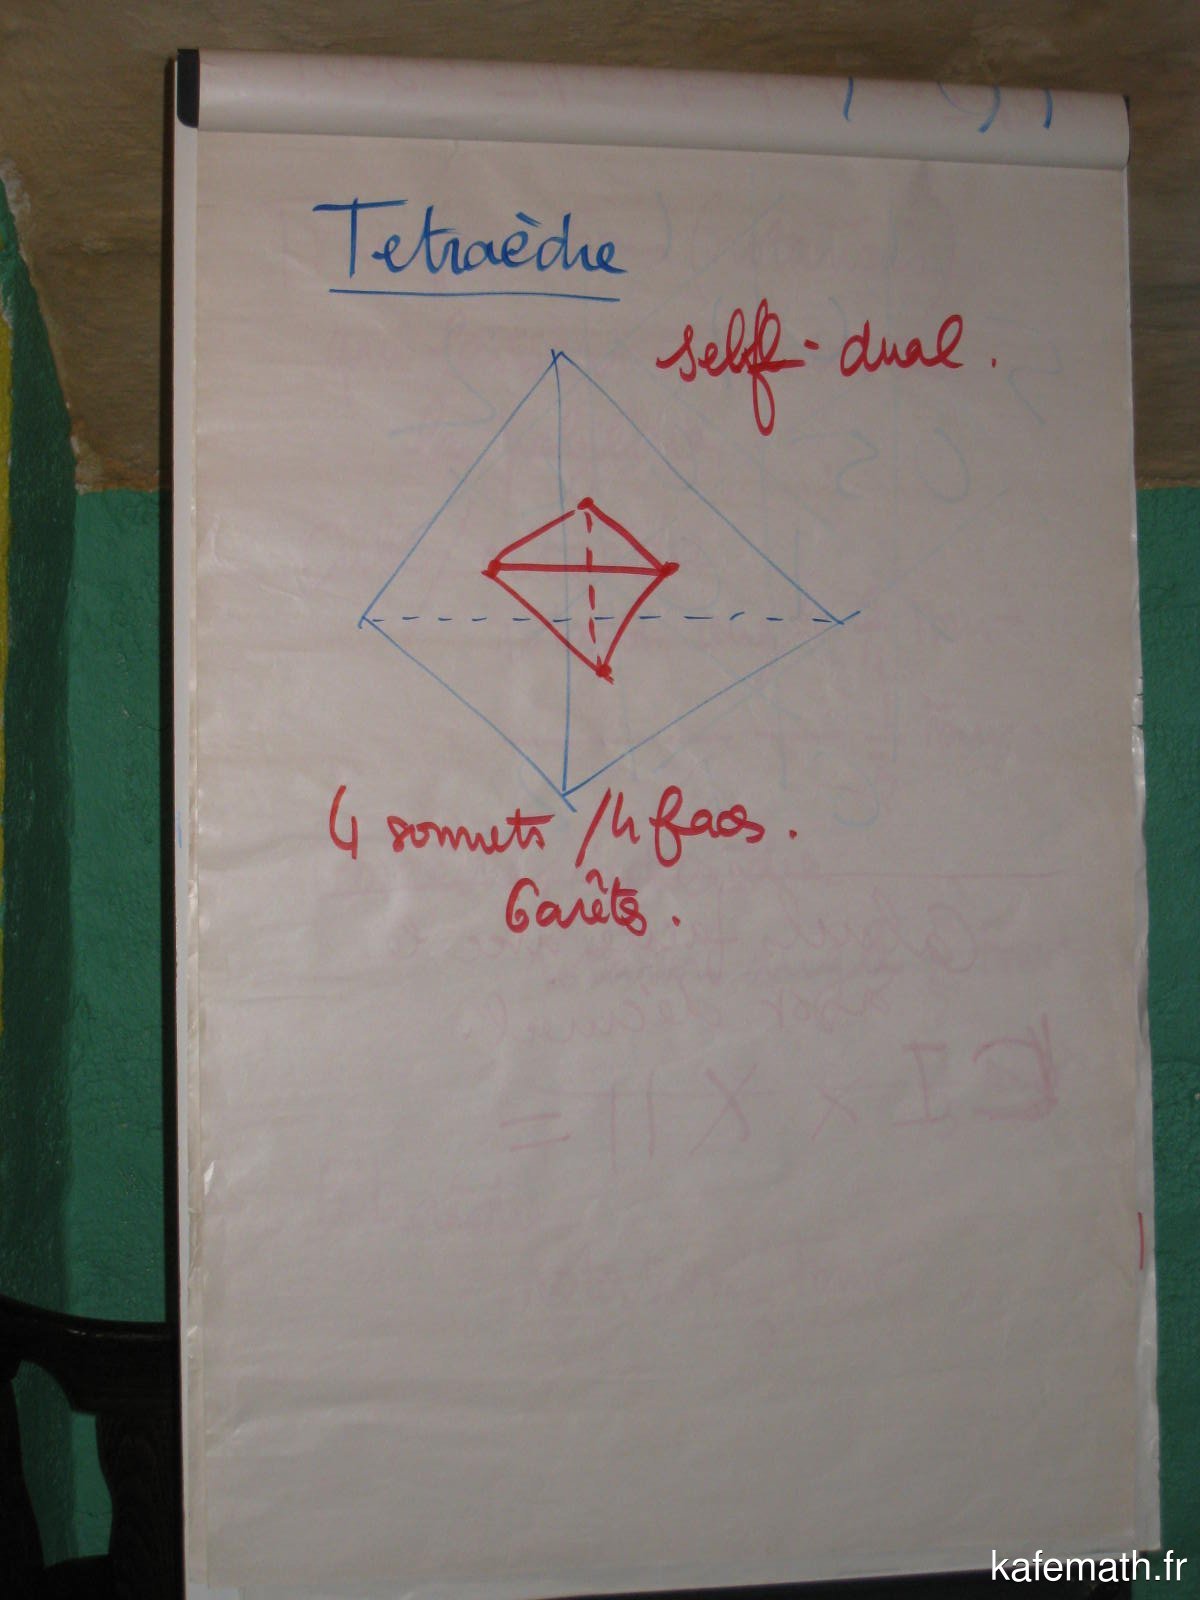 Tetraèdre
self-dual.
4 sommets / 4 faces.
6 arêtes.
kafemath.fr